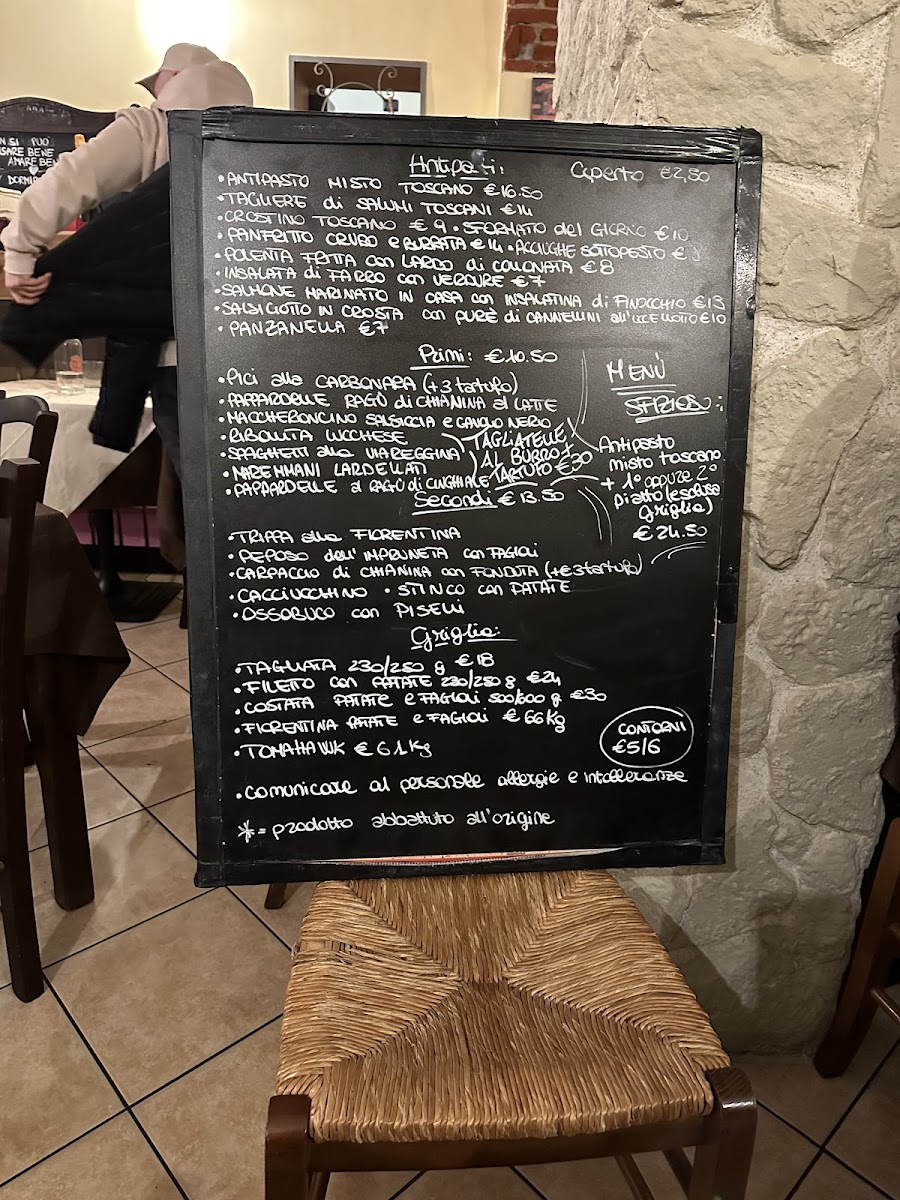 N SI PUÒ
SARE BENE
AMARE BEN
DORMIR
Antipasti: Coperto €2,50
•ANTIPASTO MISTO TOSCANO €16.50
•TAGLIERE di SALUMI TOSCANI €14
•CROSTINO TOSCANO €9 •SFORMATO del GIORNO €10
•PANFRITTO CRUDO e BURRATA €14 •ACCIUGHE SOTTOPESTO €
•POLENTA FRITTA con LARDO di COLONNATA €8
•INSALATA di FARRO con VERDURE €7
•SALMONE MARINATO IN CASA con INSALATINA di FINOCCHIO €13
•SALSICIOTTO IN CROSTA con PURÈ di CANNELLINI all'UCCELLETTO €10
•PANZANELLA €7
Primi: €10.50
•PICI alla CARBONARA (+3 tartufo)
•PAPPARDELLE RAGÙ di CHIANINA al LATTE
•MACCHERONCINO SALSICCIA e CAVOLO NERO
•RIBOLLITA LUCCHESE
•SPAGHETTI alla VIAREGGINA
•MAREMMANI LARDELLATI
•PAPPARDELLE al RAGÙ di CINGHIALE
TAGLIATELLE
AL BURRO +
TARTUFO €30
MENÙ
SFIZIOSO:
Antipasto
misto toscano
+ 1° oppure 2°
piatto (esclusa
griglia)
€24.50
Secondi €13.50
•TRIPPA alla FIORENTINA
•PEPOSO dell'IMPRUNETA con FAGIOLI
•CARPACCIO di CHIANINA con FONDUTA (+€3 tartufo)
•CACCIUCCHINO •STINCO con PATATE
•OSSOBUCO con PISELLI
Griglia:
•TAGLIATA 230/250 g €18
•FILETTO con PATATE 230/250 g €24
•COSTATA PATATE e FAGIOLI 500/600 g €30
•FIORENTINA PATATE e FAGIOLI €66Kg
•TOMAHAWK €61Kg
CONTORNI
€5/6
•comunicare al personale allergie e intolleranze
*= prodotto abbattuto all'origine